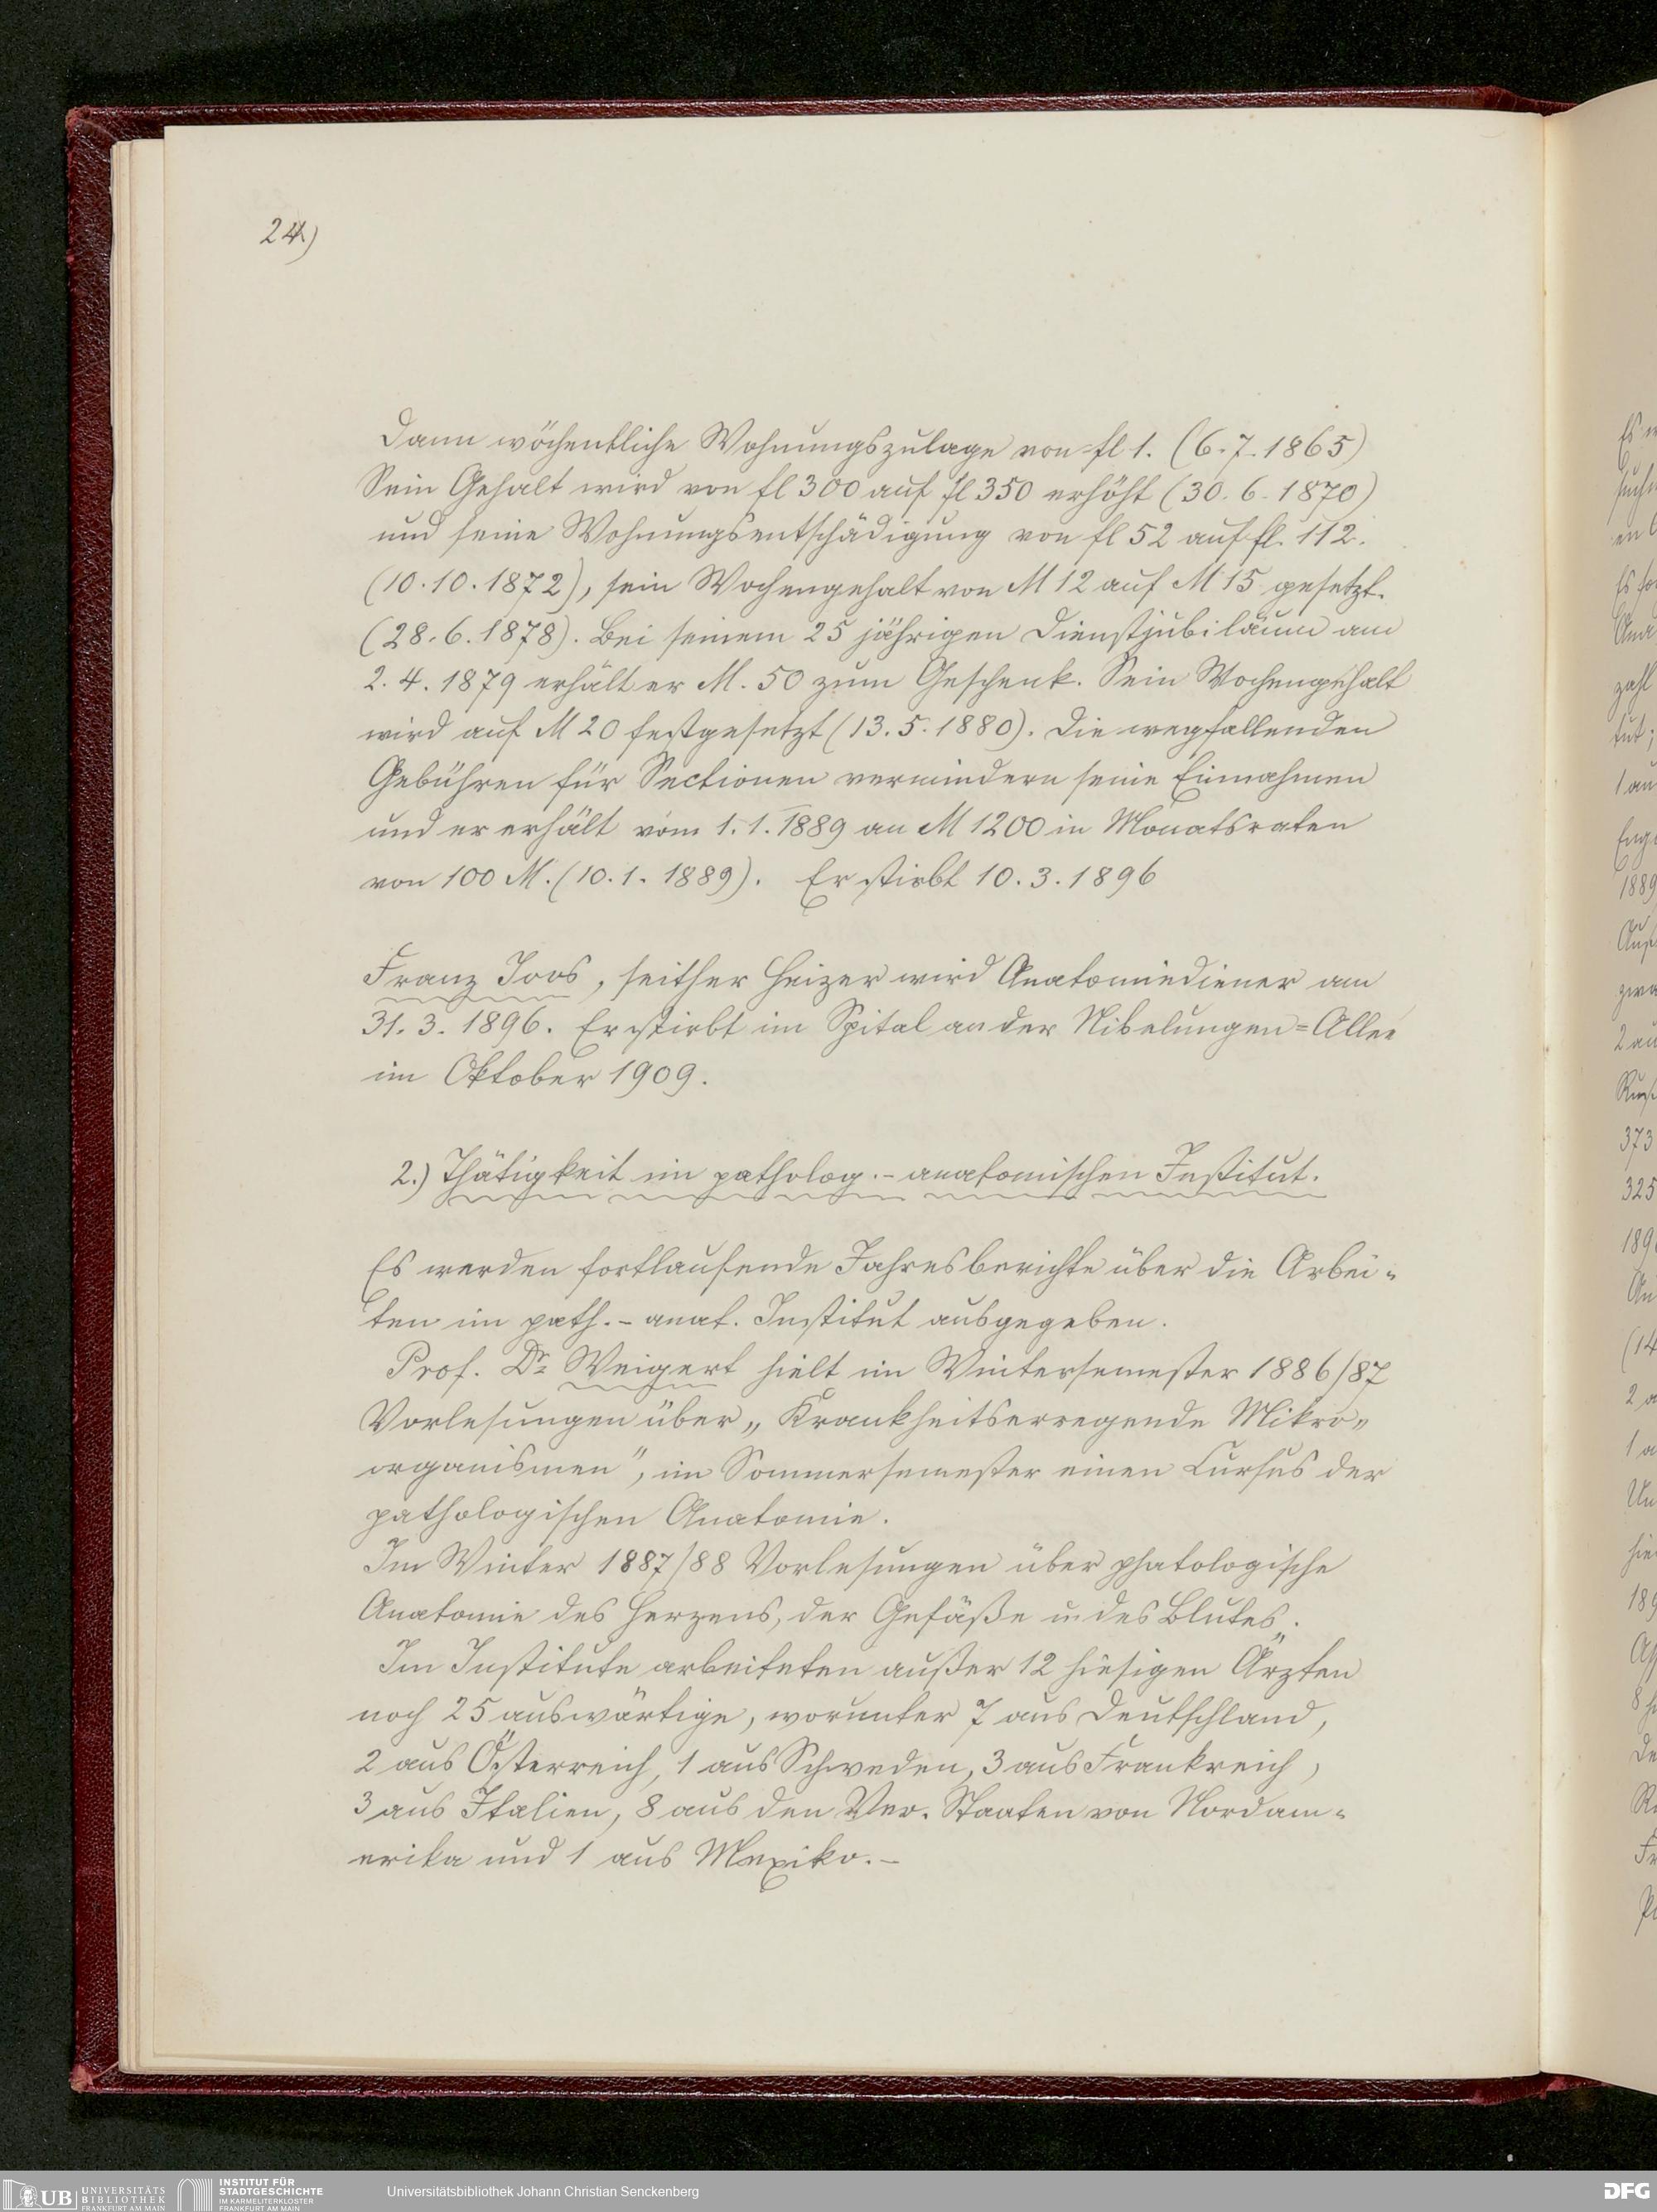 24)
Dann wöchentliche Wohnungszulage von fl 1. (6.7.1865)
Sein Gehalt wird von fl 300 auf fl 350 erhöht (30.6.1870)
und seine Wohnungsentschädigung von fl 52 auf fl. 112.
(10.10.1872), sein Wochengehalt von M 12 auf M 15 gesetzt.
(28.6.1878). Bei seinem 25 jährigen Dienstjubiläum am
2.4.1879 erhält er M. 50 zum Geschenk. Sein Wochengehalt
wird auf M 20 festgesetzt (13.5.1880). Die wegfallenden
Gebühren für Sectionen vermindern seine Einnahmen
und er erhält vom 1.1.1889 an M 1200 in Monatsraten
von 100 M. (10.1.1889). Er stirbt 10.3.1896
Franz Joos, seither Heizer wird Anatomiediener am
31.3.1896. Er stirbt im Spital an der Nibelungen=Allee
im Oktober 1909.
2.) Thätigkeit im patholog.-anatomischen Institut.
Es werden fortlaufende Jahresberichte über die Arbei-
ten im path.-anat. Institut ausgegeben.
Prof. Dr. Weigert hielt im Wintersemester 1886/87
Vorlesungen über „Krankheitserregende Mikro=
organismen", im Sommersemester einen Cursus der
pathologischen Anatomie.
Im Winter 1887/88 Vorlesungen über phatologische
Anatomie des Herzens, der Gefäße u. des Blutes.
Im Institute arbeiteten außer 12 hiesigen Ärzten
noch 25 auswärtige, worunter 7 aus Deutschland,
2 aus Österreich, 1 aus Schweden, 3 aus Frankreich,
3 aus Italien, 8 aus den Ver. Staaten von Nordam-
erika und 1 aus Mexiko.-
UB UNIVERSITÄTS BIBLIOTHEK FRANKFURT AM MAIN
INSTITUT FÜR STADTGESCHICHTE IM KARMELITERKLOSTER FRANKFURT AM MAIN
Universitätsbibliothek Johann Christian Senckenberg
DFG